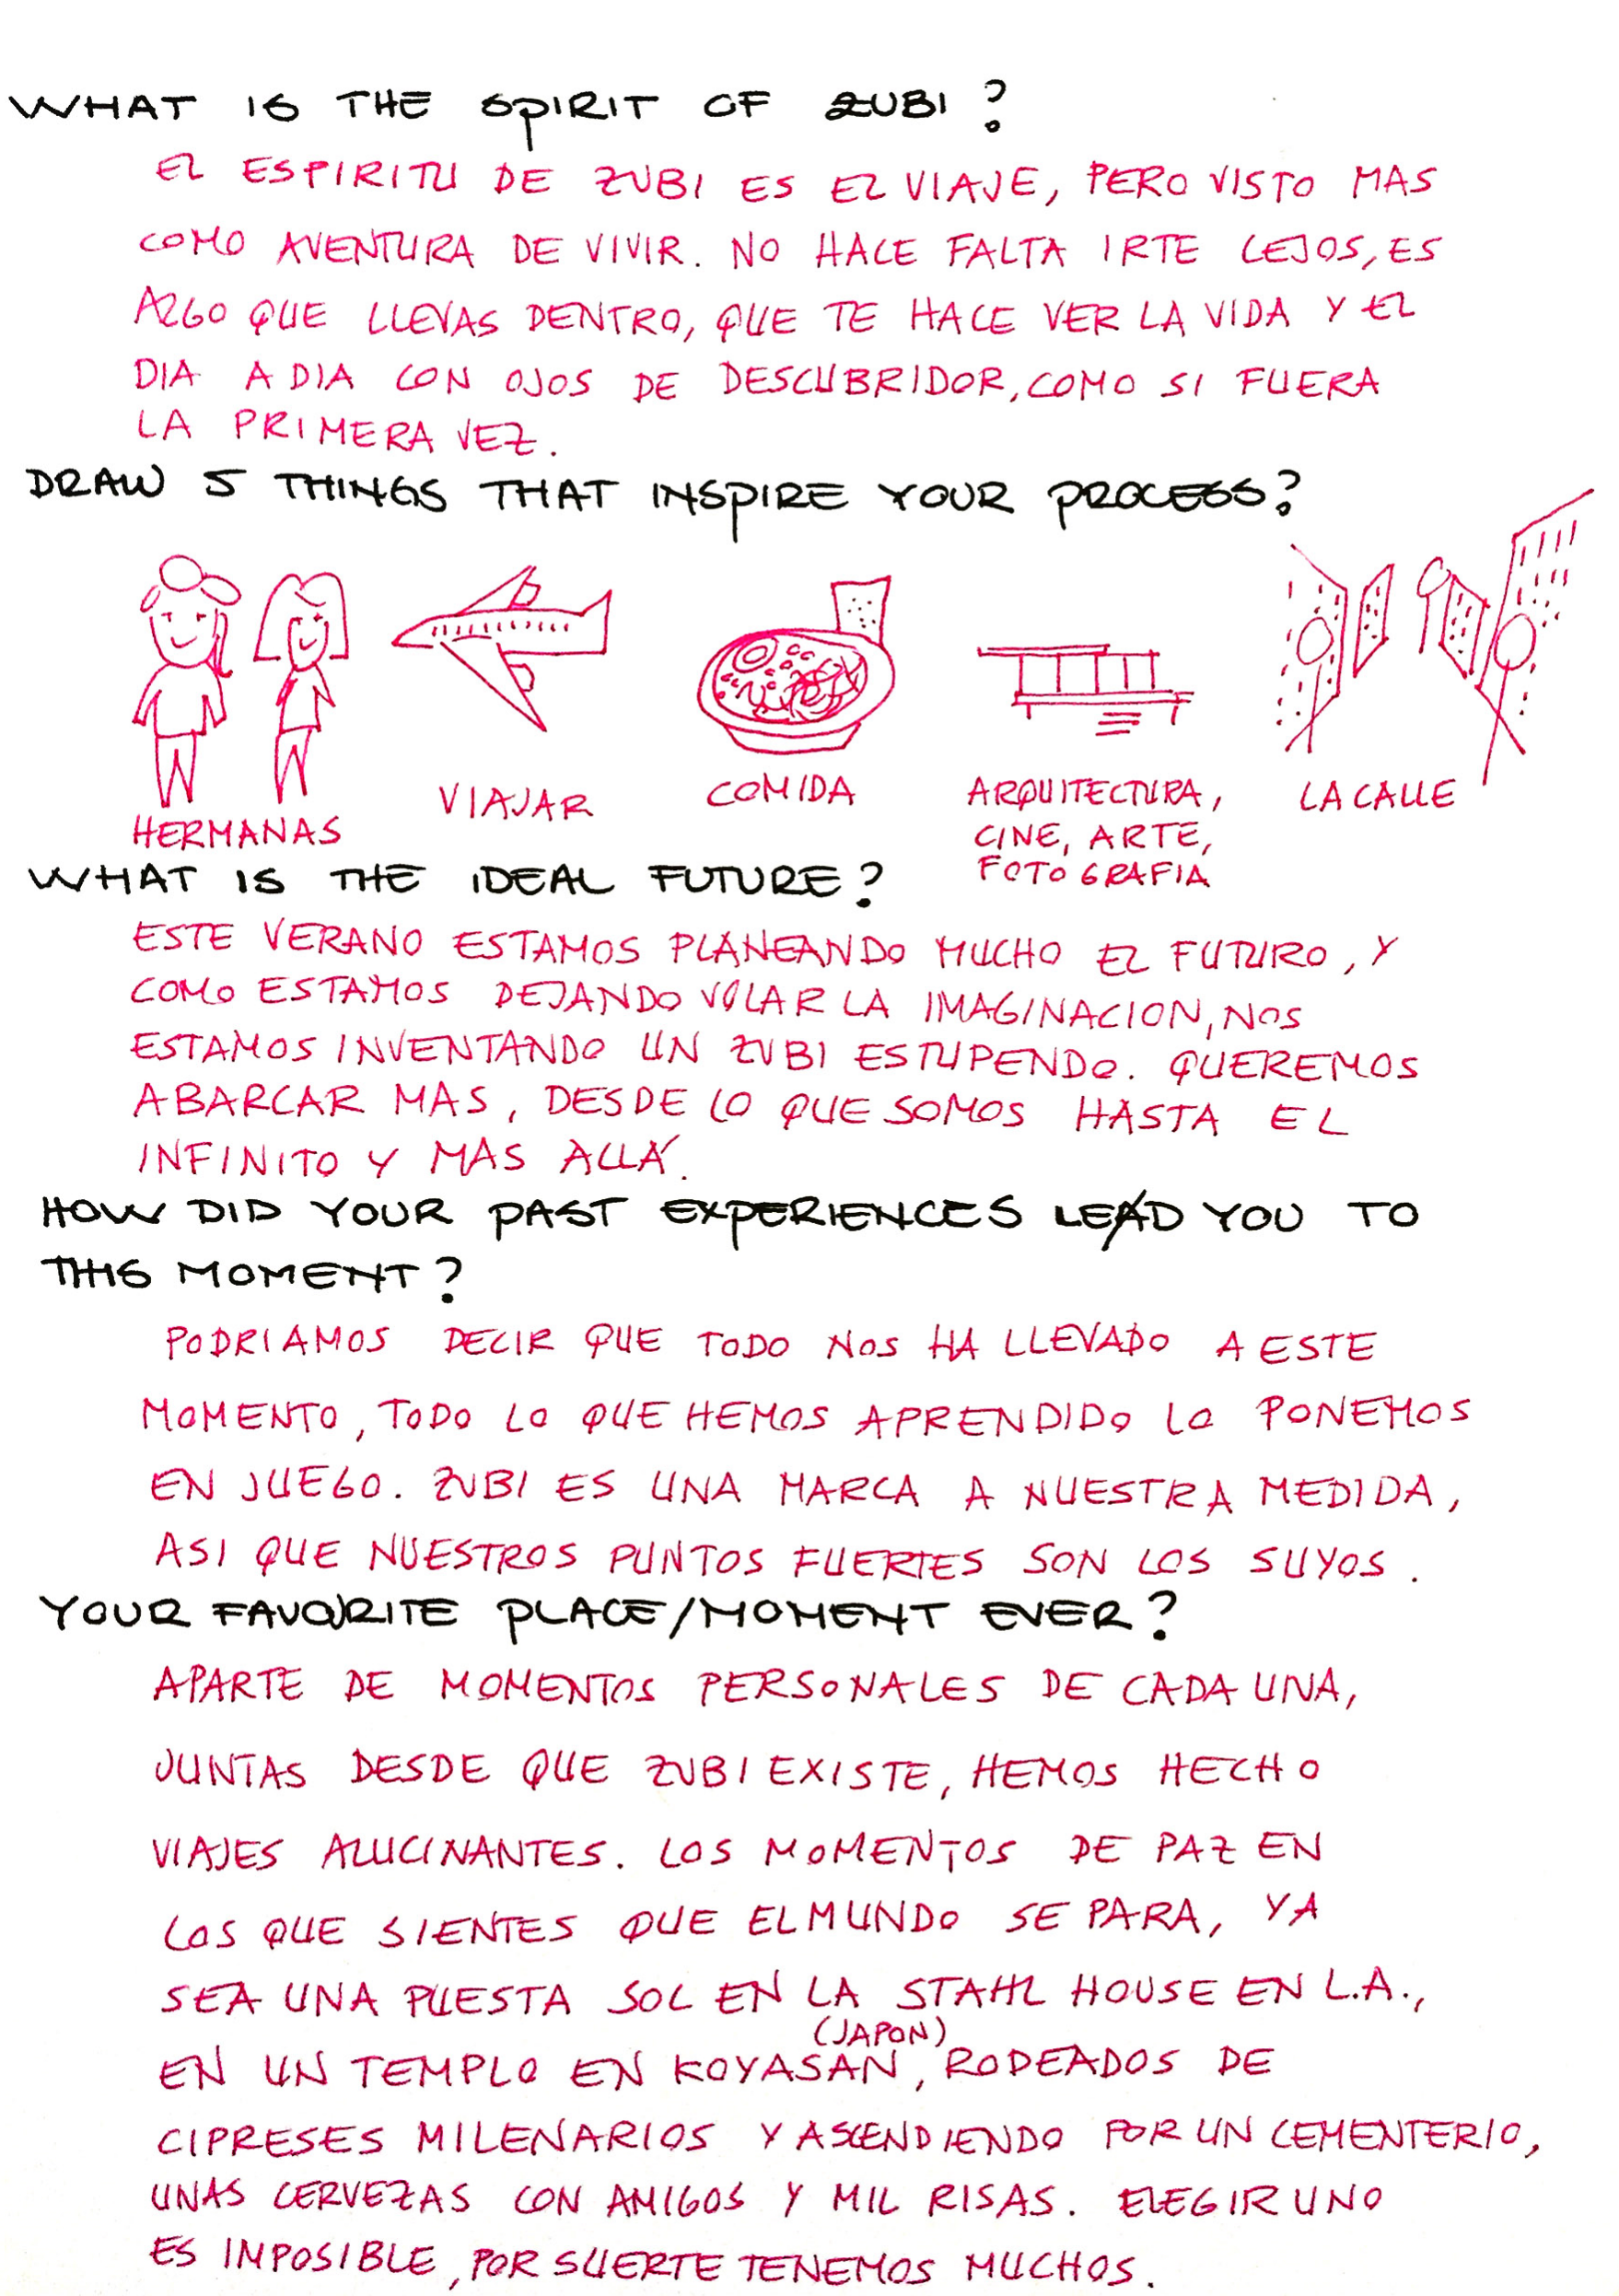 WHAT IS THE SPIRIT OF ZUBI?
EL ESPIRITU DE ZUBI ES EL VIAJE, PERO VISTO MAS
COMO AVENTURA DE VIVIR. NO HACE FALTA IRTE LEJOS, ES
ALGO QUE LLEVAS DENTRO, QUE TE HACE VER LA VIDA Y EL
DIA A DIA CON OJOS DE DESCUBRIDOR, COMO SI FUERA
LA PRIMERA VEZ.
DRAW 5 THINGS THAT INSPIRE YOUR PROCESS?
HERMANAS
VIAJAR
COMIDA
ARQUITECTURA,
CINE, ARTE,
FOTOGRAFIA
LA CALLE
WHAT IS THE IDEAL FUTURE?
ESTE VERANO ESTAMOS PLANEANDO MUCHO EL FUTURO, Y
COMO ESTAMOS DEJANDO VOLAR LA IMAGINACION, NOS
ESTAMOS INVENTANDO UN ZUBI ESTUPENDO. QUEREMOS
ABARCAR MAS, DESDE LO QUE SOMOS HASTA EL
INFINITO Y MAS ALLÁ.
HOW DID YOUR PAST EXPERIENCES LEAD YOU TO
THIS MOMENT?
PODRIAMOS DECIR QUE TODO NOS HA LLEVADO A ESTE
MOMENTO, TODO LO QUE HEMOS APRENDIDO LO PONEMOS
EN JUEGO. ZUBI ES UNA MARCA A NUESTRA MEDIDA,
ASI QUE NUESTROS PUNTOS FUERTES SON LOS SUYOS.
YOUR FAVORITE PLACE/MOMENT EVER?
APARTE DE MOMENTOS PERSONALES DE CADA UNA,
JUNTAS DESDE QUE ZUBI EXISTE, HEMOS HECHO
VIAJES ALUCINANTES. LOS MOMENTOS DE PAZ EN
LOS QUE SIENTES QUE EL MUNDO SE PARA, YA
SEA UNA PUESTA SOL EN LA STAHL HOUSE EN L.A.,
(JAPON)
EN UN TEMPLO EN KOYASAN, RODEADOS DE
CIPRESES MILENARIOS Y ASCENDIENDO POR UN CEMENTERIO,
UNAS CERVEZAS CON AMIGOS Y MIL RISAS. ELEGIR UNO
ES IMPOSIBLE, POR SUERTE TENEMOS MUCHOS.